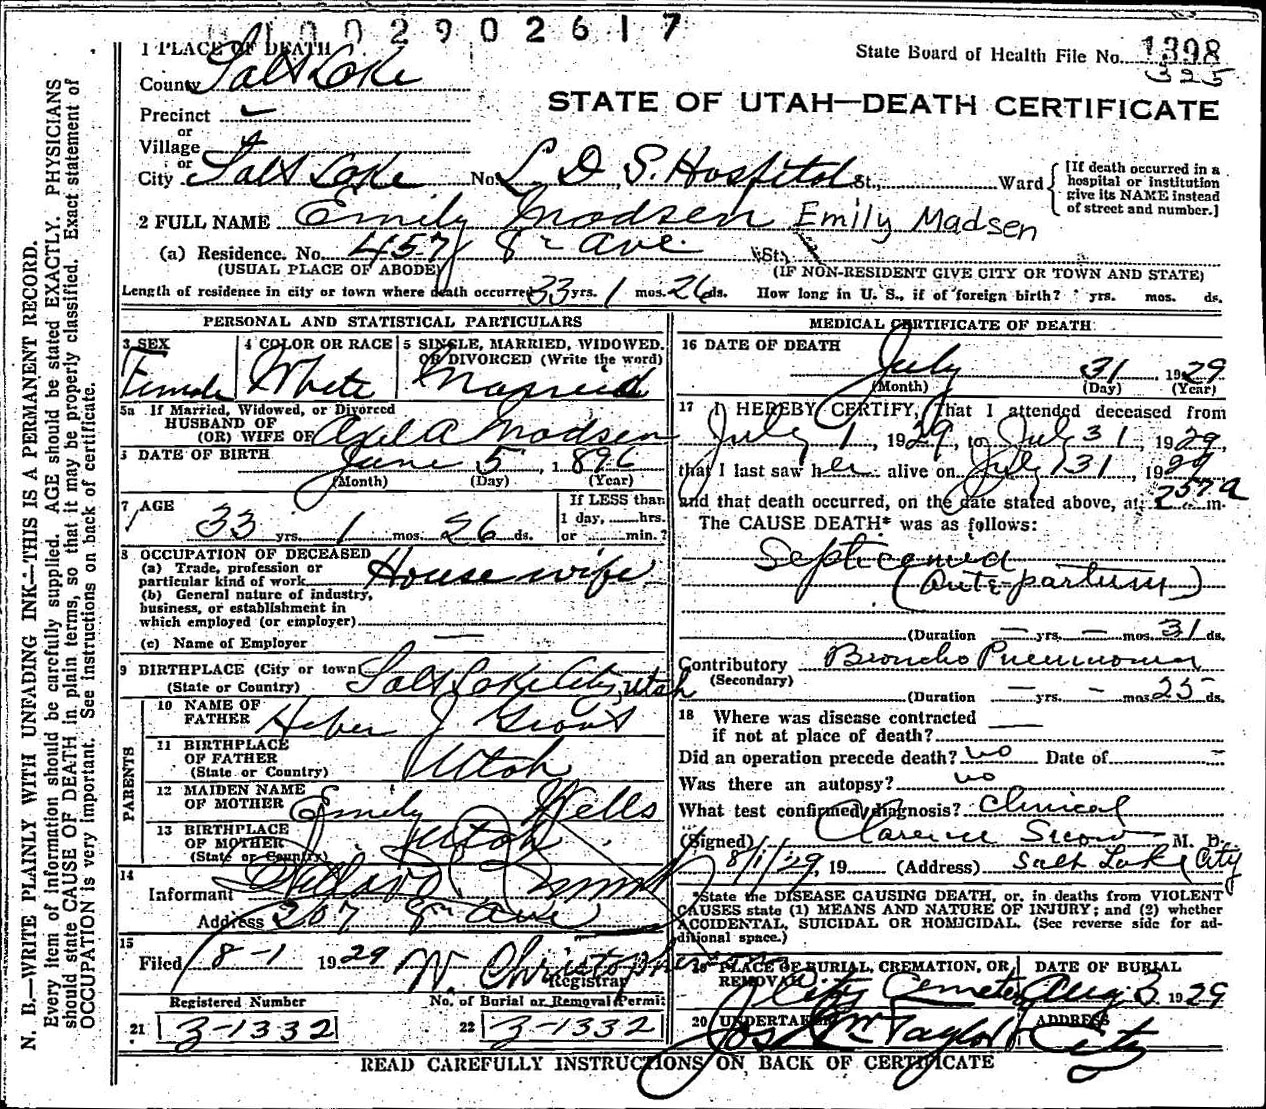 1 0 0 2 9 0 2 6 1 7
State Board of Health File No. 1398
325
STATE OF UTAH—DEATH CERTIFICATE
1 PLACE OF DEATH
County Salt Lake
Precinct
or
Village
or
City Salt Lake No. L. D. S. Hospital St., Ward
[If death occurred in a hospital or institution give its NAME instead of street and number.]
2 FULL NAME Emily Madsen Emily Madsen
(a) Residence. No. 457 8th Ave. St.
(USUAL PLACE OF ABODE) (IF NON-RESIDENT GIVE CITY OR TOWN AND STATE)
Length of residence in city or town where death occurred 33 yrs. 1 mos. 26 ds. How long in U. S., if of foreign birth? yrs. mos. ds.
PERSONAL AND STATISTICAL PARTICULARS
3 SEX
Female
4 COLOR OR RACE
White
5 SINGLE, MARRIED, WIDOWED, OR DIVORCED (Write the word)
Married
5a If Married, Widowed, or Divorced
HUSBAND OF
(OR) WIFE OF Axel A Madsen
6 DATE OF BIRTH June 5, 1896
(Month) (Day) (Year)
7 AGE
33 yrs. 1 mos. 26 ds.
If LESS than
1 day, hrs.
or min.?
8 OCCUPATION OF DECEASED
(a) Trade, profession or
particular kind of work Housewife
(b) General nature of industry,
business, or establishment in
which employed (or employer)
(c) Name of Employer
9 BIRTHPLACE (City or town)
(State or Country) Salt Lake City, Utah
PARENTS
10 NAME OF
FATHER Heber J Grant
11 BIRTHPLACE
OF FATHER
(State or Country) Utah
12 MAIDEN NAME
OF MOTHER Emily Wells
13 BIRTHPLACE
OF MOTHER
(State or Country) Utah
14
Informant
Address 207 8th Ave
15
Filed 8-1 1929 W Christopherson
Registrar
Registered Number No. of Burial or Removal Permit
21 3-1332 22 3-1332
MEDICAL CERTIFICATE OF DEATH
16 DATE OF DEATH
July 31 1929
(Month) (Day) (Year)
17 I HEREBY CERTIFY, That I attended deceased from
July 1, 1929, to July 31 1929,
that I last saw her alive on July 31, 1929
and that death occurred, on the date stated above, at 257 a m.
The CAUSE DEATH* was as follows:
Septicemia
(Ante-partum)
(Duration — yrs. — mos. 31 ds.
Contributory Broncho Pneumonia
(Secondary)
(Duration — yrs. - mos. 25 ds.
18 Where was disease contracted
if not at place of death?
Did an operation precede death? no Date of
Was there an autopsy? no
What test confirmed diagnosis? Clinical
(Signed) Clarence Snow M. D.
8/1/29, 19 (Address) Salt Lake City
*State the DISEASE CAUSING DEATH, or, in deaths from VIOLENT
CAUSES state (1) MEANS AND NATURE OF INJURY; and (2) whether
ACCIDENTAL, SUICIDAL OR HOMICIDAL. (See reverse side for ad-
ditional space.)
19 PLACE OF BURIAL, CREMATION, OR
REMOVAL City Cemetery
DATE OF BURIAL
Aug 3 1929
20 UNDERTAKER
Jos Wm Taylor
ADDRESS
City
READ CAREFULLY INSTRUCTIONS ON BACK OF CERTIFICATE
N. B.—WRITE PLAINLY WITH UNFADING INK—THIS IS A PERMANENT RECORD.
Every item of information should be carefully supplied. AGE should be stated EXACTLY. PHYSICIANS
should state CAUSE OF DEATH in plain terms, so that it may be properly classified. Exact statement of
OCCUPATION is very important. See instructions on back of certificate.